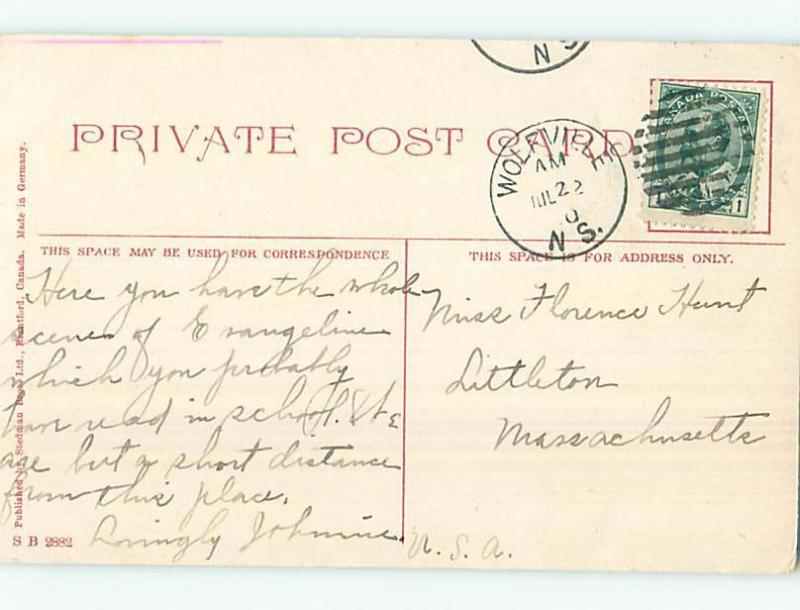 N S.
PRIVATE POST CARD
CANADA POSTAGE
1
WOLFVILLE
AM
JUL 22
0
N S.
THIS SPACE MAY BE USED FOR CORRESPONDENCE
THIS SPACE IS FOR ADDRESS ONLY.
Here you have the whole
scene of Evangeline
which you probably
have read in school.
are but a short distance
from this place.
Lovingly Johnnie.
Miss Florence Hunt
Littleton
Massachusetts
U.S.A.
Published by Stedman Bros. Ltd., Brantford, Canada. Made in Germany.
S B 2882